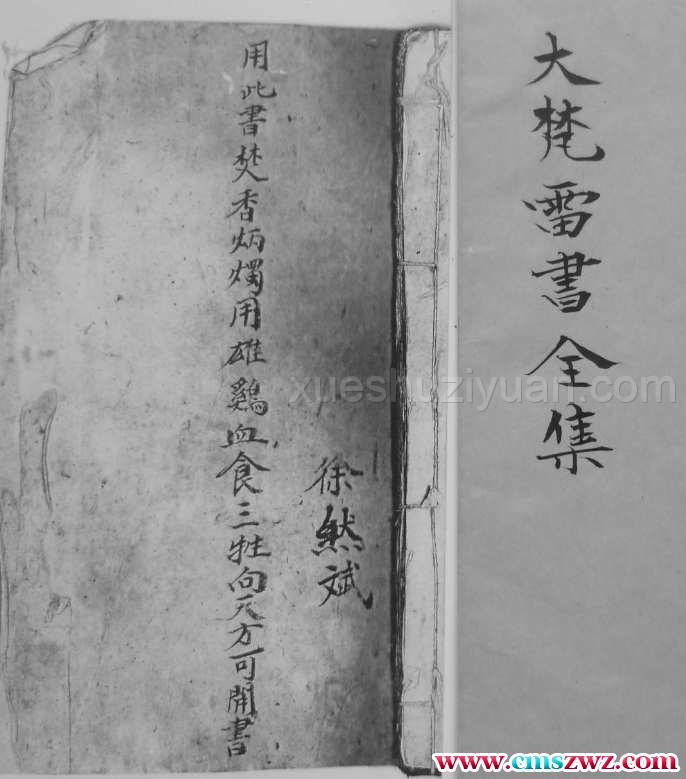 大梵雷書全集
徐然斌
用此書焚香炳燭用雄鷄血食三牲向天方可開書
xueshuziyuan.com
www.cmszwz.com